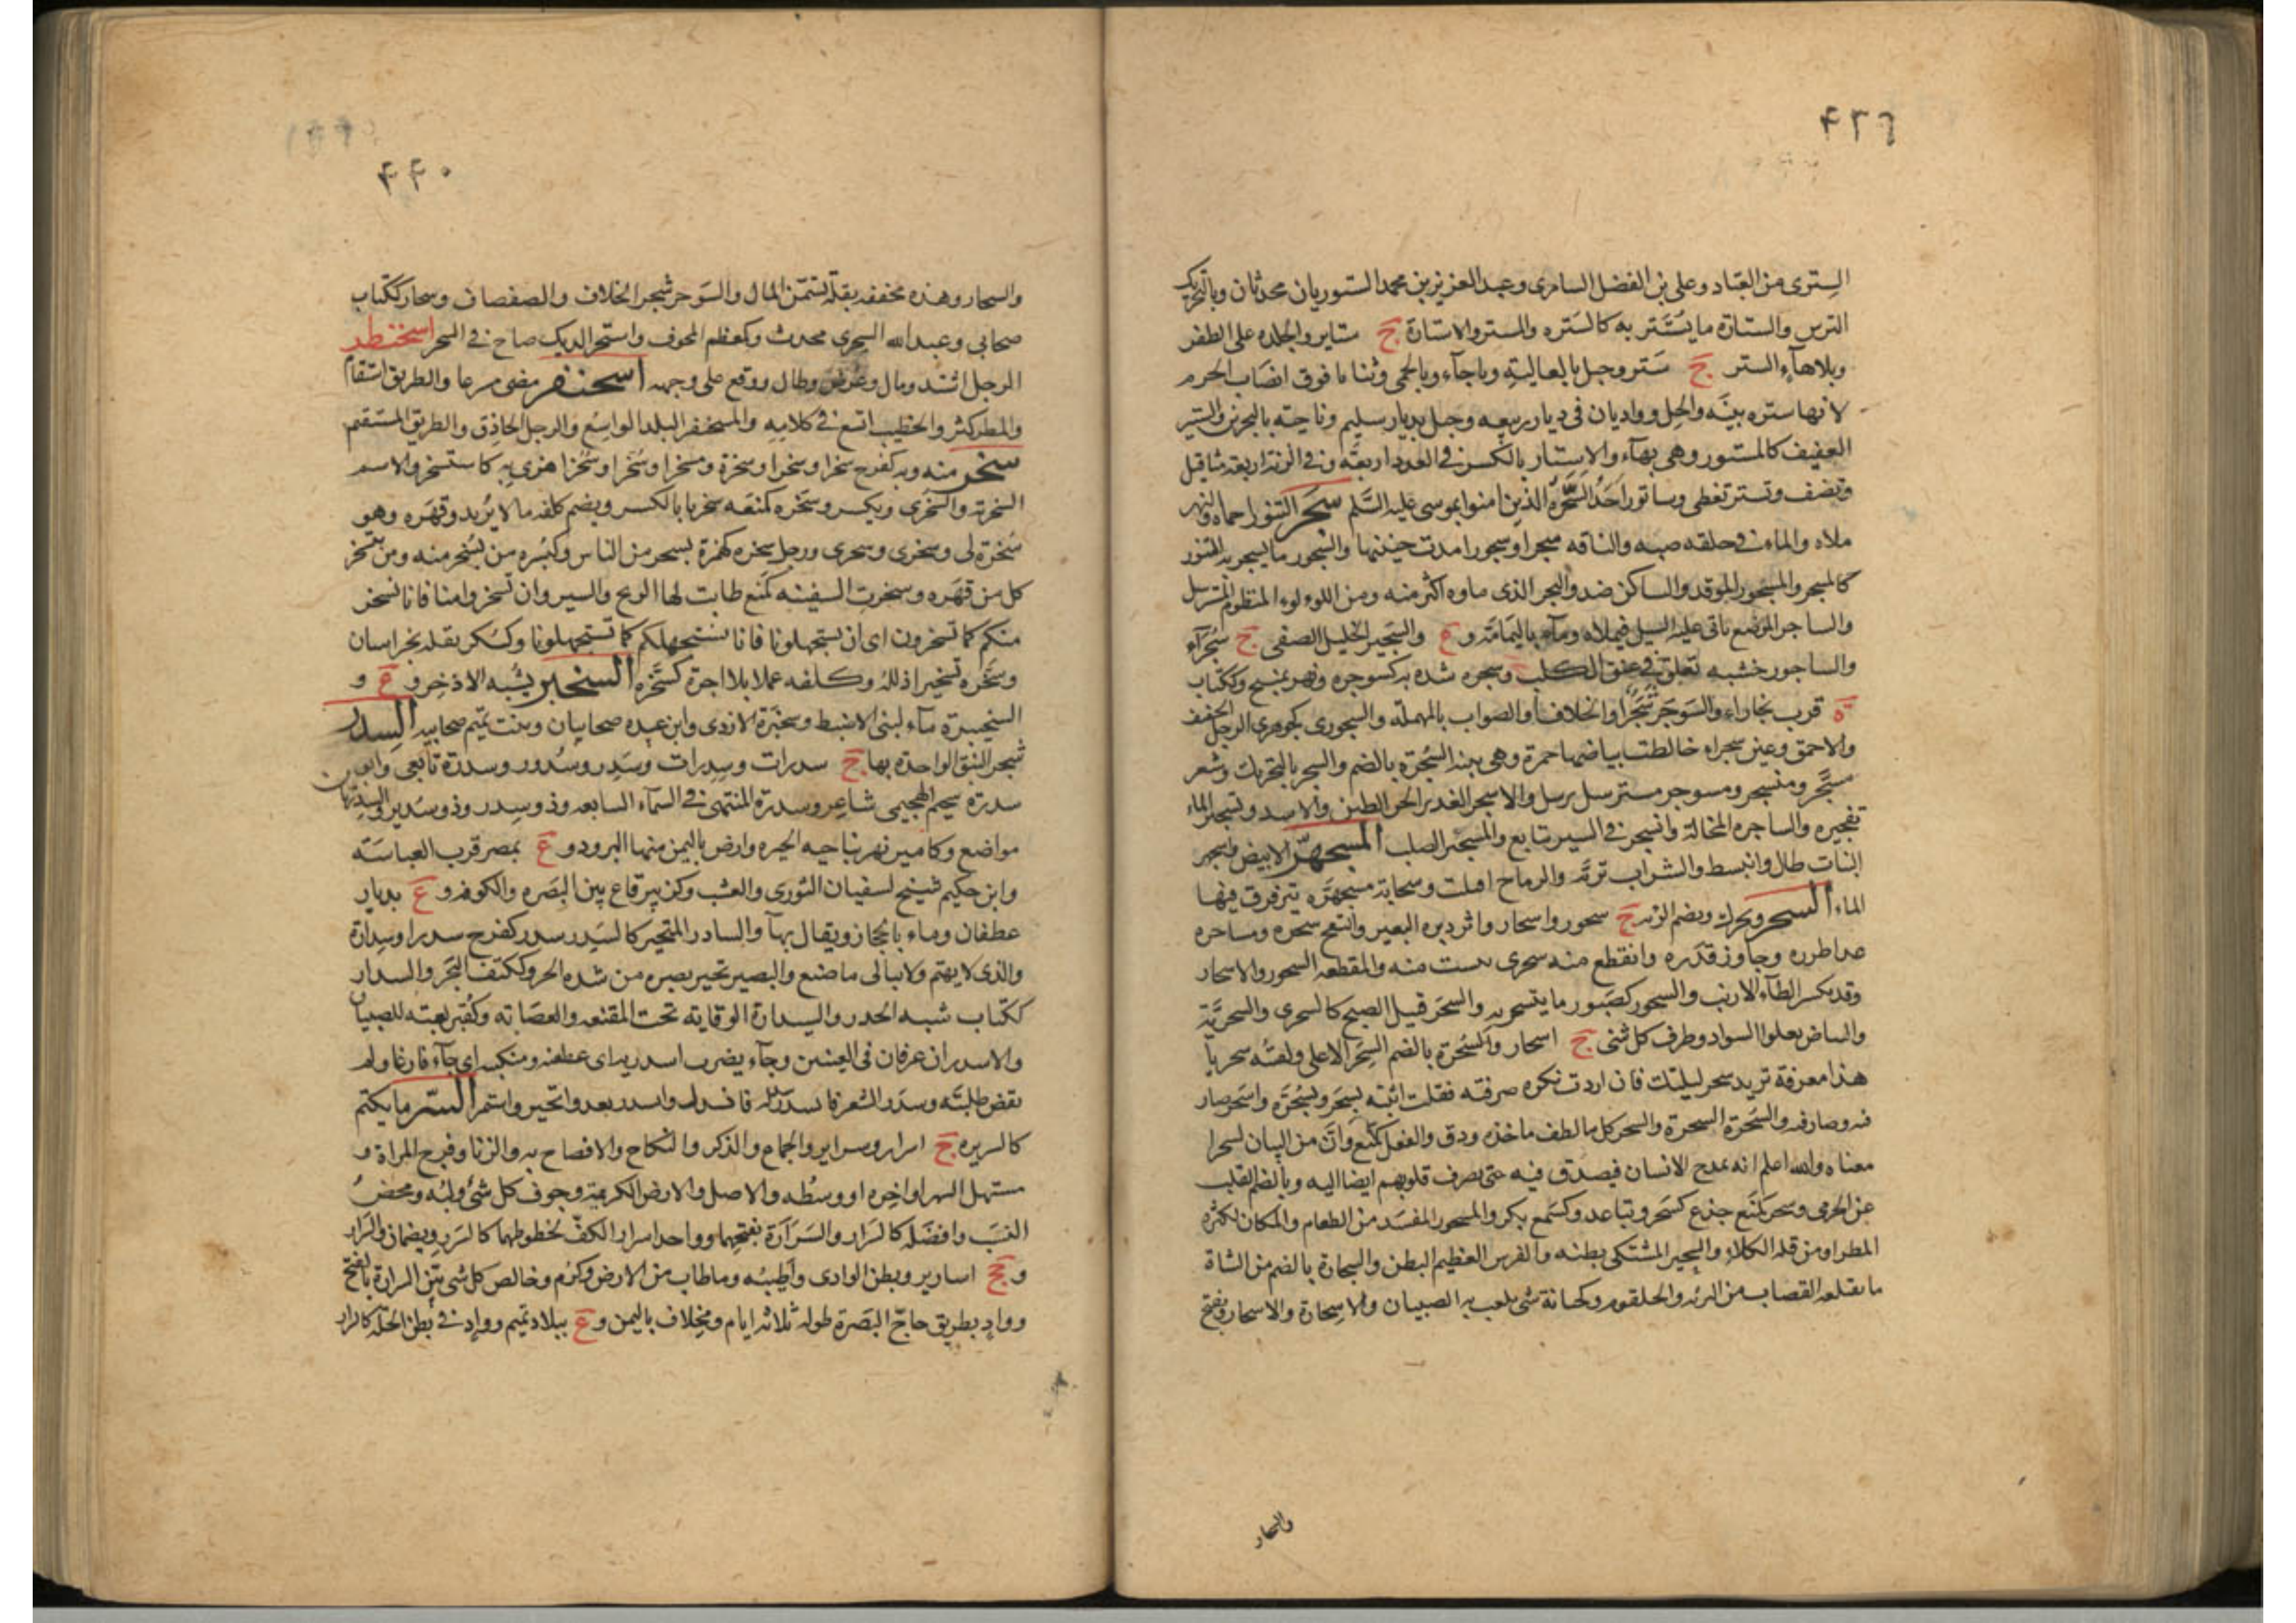 ٤٣٩
السترى من العباد وعلى بن الفضل السامرى وعبد العزيز بن محمد الستوريان محدثان وبالتحريك
الترس والستارة ما يستتر به كالستره والمستر والاستارة ج ستاير والجلده على الظفر
وبلاهآء الستر ج ستر وجبل بالعالية وباجآء وبالحمى وثنايا فوق انصاب الحرم
لانها ستره بينه والحل وواديان فى ديار ربيعه وجبل بديار سليم وناحيته بالبحرين والستير
العفيف كالمستور وهى بهآء والاستار بالكسر فى العدد اربعة وفى الزنة اربعة مثاقيل
ونصف وتستر تغطى وساتور احد السحرة الذين امنوا بموسى عليه السلم سجر التنور احماه والنهر
ملاه والماء فى حلقه صبه والناقه سجرا وسجورا مدت حنينها والسجور ما يسجر به التنور
كالمسجر والمسجور الموقد والساكن ضد والبحر الذى ماوه اكثر منه ومن اللولو المنظوم المسترسل
والساجر الموضع ياتى عليه السيل فيملاه ومآء باليمامة و ع والسجير الخليل الصفى ج سجرآء
والساجور خشبه تعلق فى عنق الكلب وسجره شده به كسوجره ونهر بمنبج وككتاب
ة قرب بخاراء والسوجر شجر او الخلاف او الصواب بالمهمله والسجورى كجوهرى الرجل الخفيف
والاحمق وعين سجراء خالطت بياضها حمرة وهى بينة السجرة بالضم والسجر بالتحريك وشعر
مسجر ومنسجر ومسوجر مسترسل مرسل والاسجر الغدير الحر الطين والاسد وتسجير الماء
تفجيره والساجره المخالة وانسجر فى السير تتابع والمسجئر الصلب المسجهر الابيض واسجهر
النبات طال وانبسط والشراب تريه والرماح اقبلت وسحابة مسجهره يترقرق فيها
الماء السحر ويحرك ويضم الرئه ج سحور واسحار واثر دبره البعير وانتفخ سحره ومساحره
عدا طوره وجاوز قدره وانقطع منه سحرى يئست منه والمقطعه السحور والاسحار
وقد يكسر الطآء الارنب والسحور كصبور ما يتسحر به والسحر قبيل الصبح كالسحرى والسحرية
والبياض يعلوا السواد وطرف كل شئ ج اسحار والسحرة بالضم السحر الاعلى ولقيته سحر يا
هذا معرفة تريد سحر ليلتك فان اردت نكره صرفته فقلت اتيته بسحر وبسحرة واسحر صار
فيه وصار فيه والسحرة السحرة والسحر كل ما لطف ماخذه ودق والفعل كمنع وان من البيان لسحرا
معناه والله اعلم انه يمدح الانسان فيصدق فيه حتى يصرف قلوبهم ايضا اليه وبالضم القلب
عن الجرمى وسحر كمنع خدع كسحر وتباعد وكسمع بكر والمسحور المفسد من الطعام والمكان لكثرة
المطر او من قلة الكلاء والسحير المشتكى بطنه والفرس العظيم البطن والسحارة بالضم من الشاة
ما يقلعه القصاب من الرئه والحلقوم وكجبانة شئ يلعب به الصبيان والاسحارة والاسحار ويفتح
والسحار
٤٤٠
والسحار وهذه مخففه بقلة تسمن المال والسوحر شجر الخلاف والصفصاف وسحار ككتاب
صحابى وعبد الله السحرى محدث وكمعظم المجوف واستحر الديك صاح فى السحر اسحنطر
الرجل امتد ومال وعرض وطال ووقع على وجهه اسحنفر مضى مسرعا والطريق استقام
والمطر كثر والخطيب اتسع فى كلامه والمسحنفر البلد الواسع والرجل الحاذق والطريق المستقيم
سخر منه وبه كفرح سخرا وسخرا وسخرة ومسخرا وسخرا وسخرا هزئ به كاستسخر والاسم
السخرية والسخرى ويكسر وسخره كمنعه سخريا بالكسر ويضم كلفه ما لا يريد وقهره وهو
سخرة لى وسخرى وسخرى ورجل سخره كهمزة يسخر من الناس وكبسره من يسخر منه ومن يتسخر
كل من قهره وسخرت السفينه كمنع طابت لها الريح والسير وان تسخروا منا فانا نسخر
منكم كما تسخرون اى ان تستجهلونا فانا نستجهلكم كما تستجهلونا وكسكر بقلة بخراسان
وسخره تسخيرا ذلله وكلفه عملا بلا اجرة كتسخره السخبر يشبه الاذخر و ع و
السخيبرة مآء لبنى الاضبط وسخبرة الازدى وابن عبده صحابيان وبنت تميم صحابيه السدر
شجر النبق الواحدة بها ج سدرات وسدرات وسدر وسدور وسدرة تابعى وابو
سدرة سحيم الهجيمى شاعر وسدرة المنتهى فى السمآء السابعه وذو سدر وذو سدير والسدرتان
مواضع وكامير نهر بناحيه الحيره وارض باليمن منها البرود و ع بمصر قرب العباسة
وابن حكيم شيخ لسفيان الثورى والعشب وكزبير قاع بين البصره والكوفه و ع بديار
غطفان وماء بالحجاز ويقال بهآ والسادر المتحير كالسدر سدر كفرح سدرا وسدارة
والذى لا يهتم ولا يبالى ما صنع والبصير تحير بصره من شده الحر وككتف البحر والسدار
ككتاب شبه الخدر والسيدارة الوقاية تحت المقنعه والعصابه وكقبر لعبة للصبيان
والاسدران عرقان فى العينين وجآء يضرب اسدريه اى عطفيه ومنكبيه اى جآء فارغا ولم
يقض طلبته وسدر الشعر فانسدر سدله فانسدل وانسدر يعدو انحدر واستمر السر ما يكتم
كالسريره ج اسرار وسراير والجماع والذكر والنكاح والافصاح به والزنا وفرج المراة و
مستهل الشهر او اخره او وسطه والاصل والارض الكريمة وجوف كل شئ ولبه ومحض
النسب وافضله كالسرار والسرارة بفتحهما وواحد اسرار الكف لخطوطها كالسرر ويضمان والسرار
و جج اسارير وبطن الوادى واطيبه وما طاب من الارض وكرم وخالص كل شئ بين السرارة بالفتح
وواد بطريق حاج البصرة طوله ثلاثه ايام ومخلاف باليمن و ع ببلاد تميم وواد فى بطن الحلة كالسرار